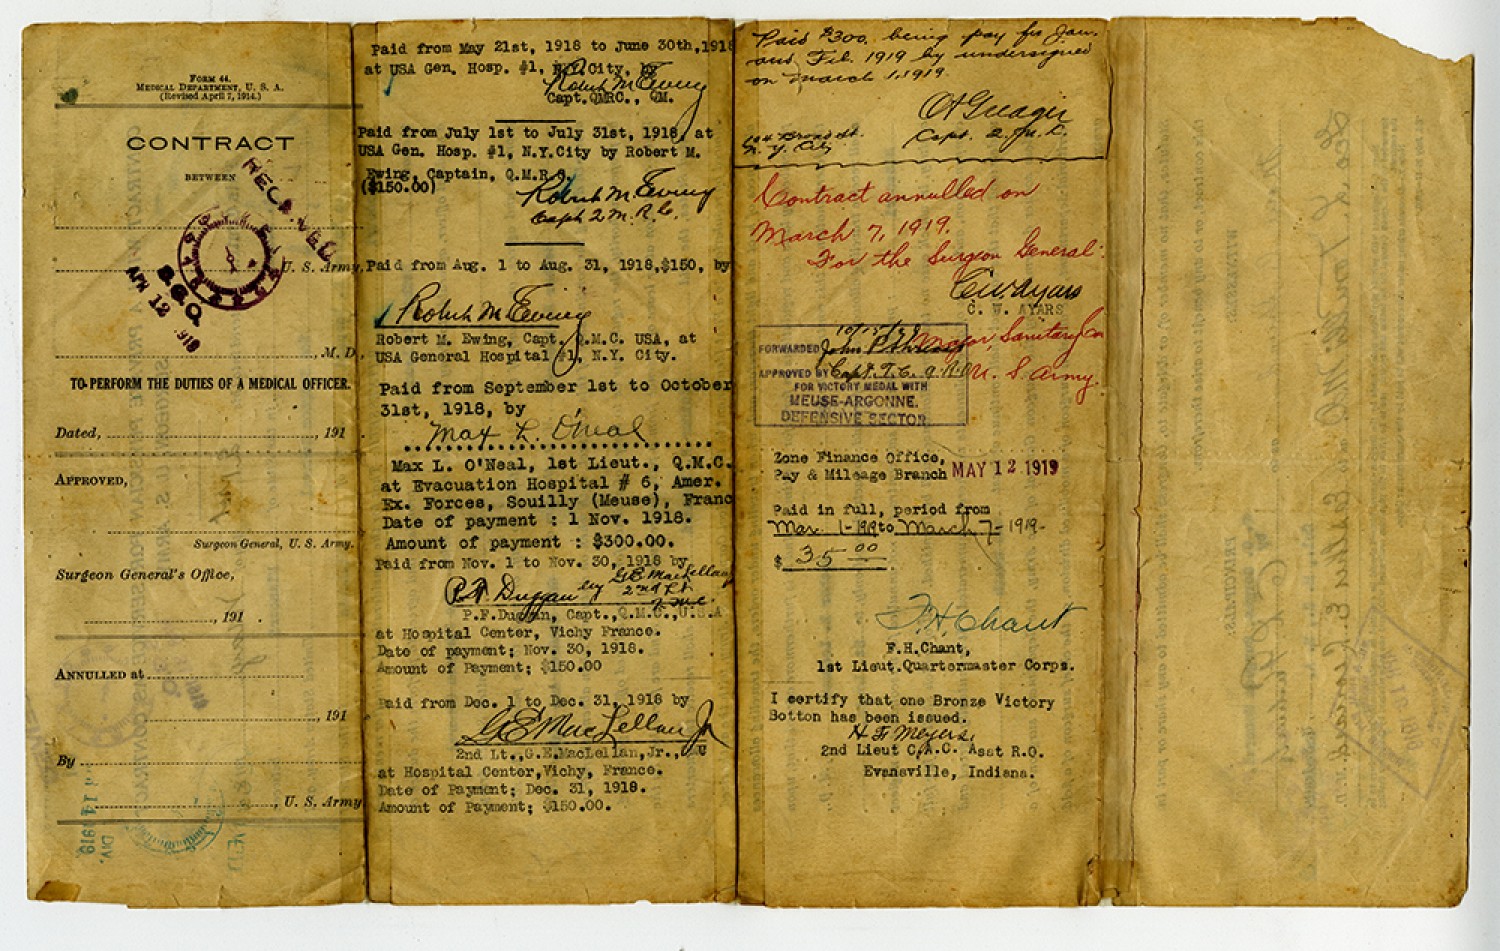 FORM 44.
MEDICAL DEPARTMENT, U. S. A.
(Revised April 7, 1914.)
CONTRACT
BETWEEN
RECEIVED
U. S. Army,
APR 12 1919
S.G.O.
, M. D.,
TO PERFORM THE DUTIES OF A MEDICAL OFFICER.
Dated, , 191 .
APPROVED,
Surgeon General, U. S. Army.
Surgeon General's Office,
, 191 .
ANNULLED at
, 191
By
, U. S. Army
1919
DIV.
Paid from May 21st, 1918 to June 30th, 1918
at USA Gen. Hosp. #1, N.Y.City, by
Robert M Ewing
Capt. QMRC., QM.
Paid from July 1st to July 31st, 1918, at
USA Gen. Hosp. #1, N.Y.City by Robert M.
Ewing, Captain, Q.M.R.C.
($150.00)
Robert M Ewing
Capt Q.M.R.C.
Paid from Aug. 1 to Aug. 31, 1918,$150, by
Robert M Ewing
Robert M. Ewing, Capt. Q.M.C. USA, at
USA General Hospital #1, N.Y. City.
Paid from September 1st to October
31st, 1918, by
Max L. O'Neal
Max L. O'Neal, 1st Lieut., Q.M.C.
at Evacuation Hospital # 6, Amer.
Ex. Forces, Souilly (Meuse), Franc
Date of payment : 1 Nov. 1918.
Amount of payment : $300.00.
Paid from Nov. 1 to Nov. 30, 1918 by
P.F. Duggan by G E MacLellan
2nd Lt
QMC.
P.F.Duggan, Capt.,Q.M.C.,U.S.A
at Hospital Center, Vichy France.
Date of payment; Nov. 30, 1918.
Amount of Payment; $150.00
Paid from Dec. 1 to Dec. 31, 1918 by
G E MacLellan Jr
2nd Lt.,G.E.MacLellan,Jr.,
at Hospital Center,Vichy, France.
Date of Payment; Dec. 31, 1918.
Amount of Payment; $150.00.
Paid $300. being pay for Jan.
and Feb. 1919 by undersigned
on March 1, 1919.
Capt. Q.M.C.
104 Broad St.
N. Y. City
Contract annulled on
March 7, 1919.
For the Surgeon General:
C.W. Ayars
C. W. AYARS
Major, Sanitary Corps
U. S. Army.
10/15/20
FORWARDED John P
APPROVED BY Capt.
FOR VICTORY MEDAL WITH
MEUSE-ARGONNE.
DEFENSIVE SECTOR.
Zone Finance Office,
Pay & Mileage Branch MAY 12 1919
Paid in full, period from
Mar. 1-1919 to March 7-1919-
$ 35 00
F.H. Chant
F.H.Chant,
1st Lieut.Quartermaster Corps.
I certify that one Bronze Victory
Botton has been issued.
H F Meyers,
2nd Lieut C.A.C. Asst R.O.
Evansville, Indiana.